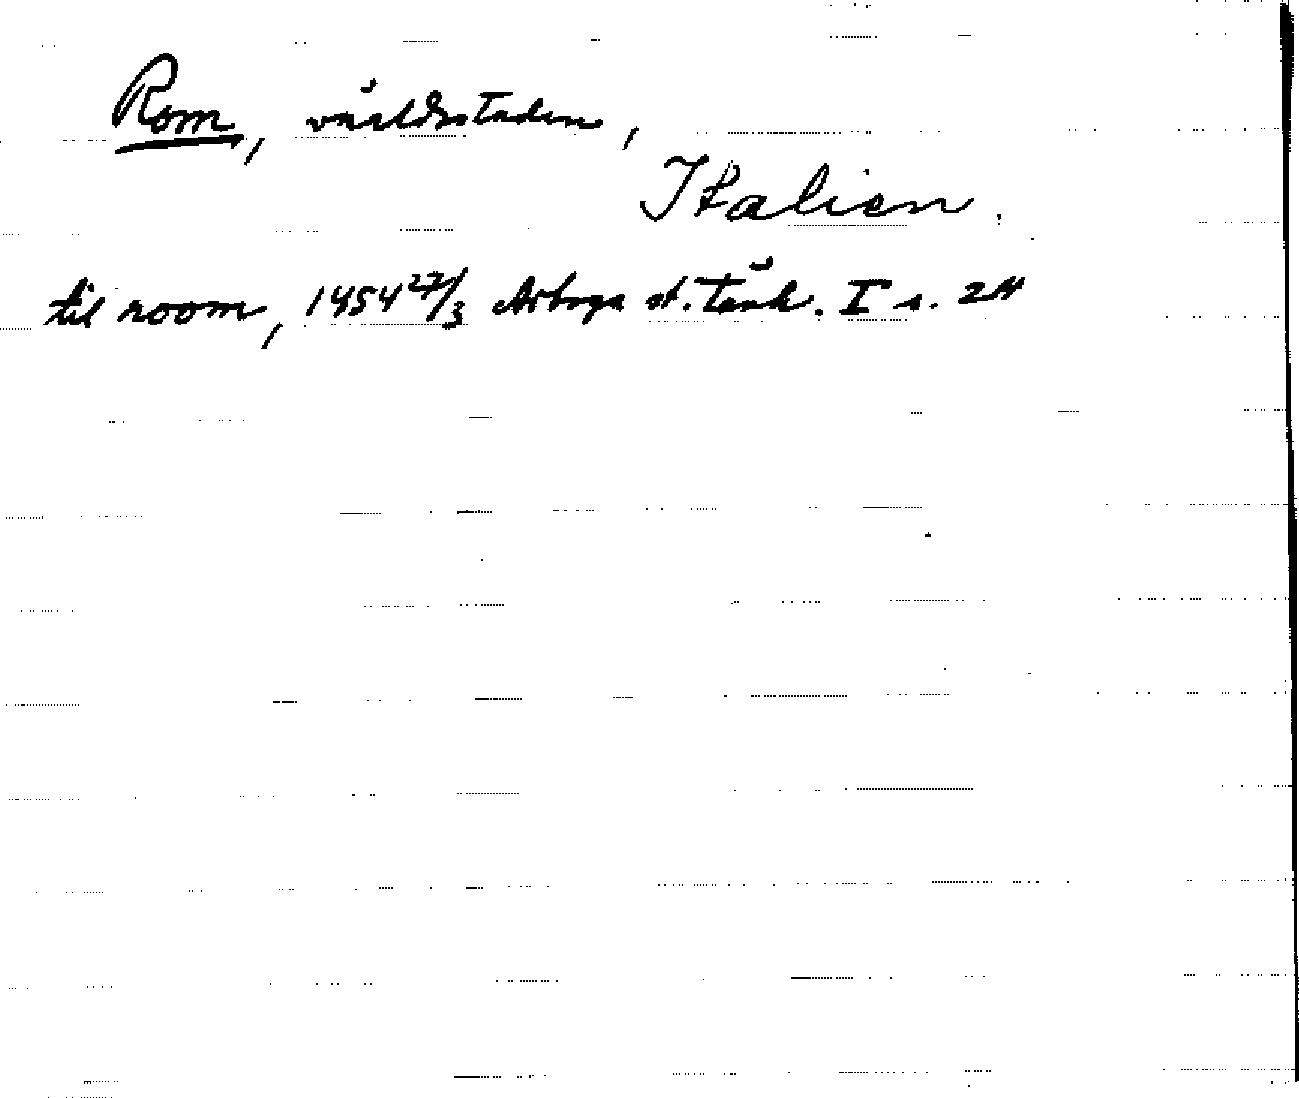 Rom, världsstaden,
Italien.
til room, 1454 27/3 Arboga st. tänk. I s. 24